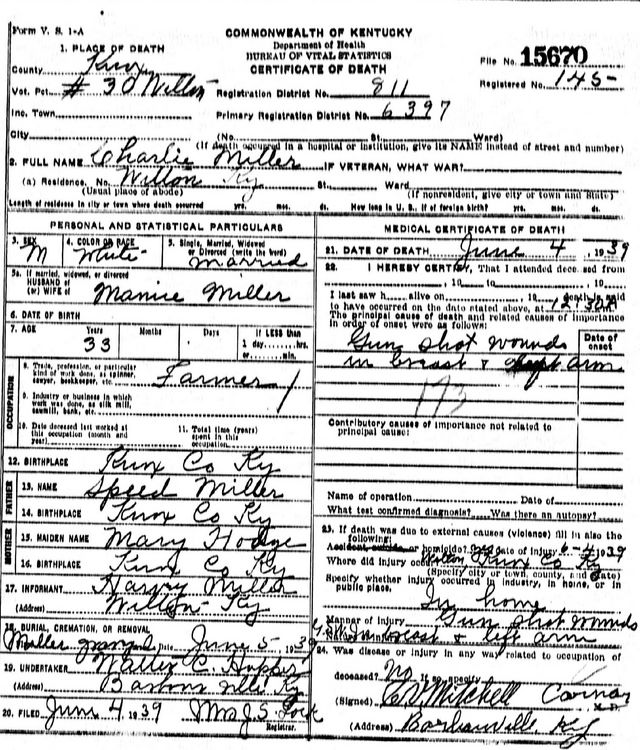 Form V. S. 1-A
COMMONWEALTH OF KENTUCKY
Department of Health
BUREAU OF VITAL STATISTICS
CERTIFICATE OF DEATH
File No. 15670
Registered No. 145-
1. PLACE OF DEATH
County Knox
Vot. Pct. # 30 Wilton
Registration District No. 811
Inc. Town
Primary Registration District No. 6397
City (No. St. Ward)
(If death occurred in a hospital or institution, give its NAME instead of street and number)
2. FULL NAME Charlie Miller IF VETERAN, WHAT WAR?
(a) Residence. No. Wilton Ky St. Ward
(Usual place of abode) (If nonresident, give city or town and State)
Length of residence in city or town where death occurred yrs. mos. ds. How long in U. S., if of foreign birth? yrs. mos. ds.
PERSONAL AND STATISTICAL PARTICULARS
3. SEX M
4. COLOR OR RACE White
5. Single, Married, Widowed or Divorced (write the word) married
5a. If married, widowed, or divorced
HUSBAND of
(or) WIFE of Mamie Miller
6. DATE OF BIRTH
7. AGE Years 33 Months Days If LESS than 1 day........hrs. or........min.
OCCUPATION
8. Trade, profession, or particular kind of work done, as spinner, sawyer, bookkeeper, etc. Farmer
9. Industry or business in which work was done, as silk mill, sawmill, bank, etc.
10. Date deceased last worked at this occupation (month and year)
11. Total time (years) spent in this occupation
12. BIRTHPLACE Knox Co Ky
FATHER
13. NAME Speed Miller
14. BIRTHPLACE Knox Co Ky
MOTHER
15. MAIDEN NAME Mary Hodge
16. BIRTHPLACE Knox Co Ky
17. INFORMANT Harvy Miller
(Address) Wilton Ky
18. BURIAL, CREMATION, OR REMOVAL
Miller Date June 5 1939
19. UNDERTAKER Walter C. Hopper
(Address) Barbourville Ky
20. FILED June 4 1939 Mrs J. S.
Registrar.
MEDICAL CERTIFICATE OF DEATH
21. DATE OF DEATH June 4, 1939
22. I HEREBY CERTIFY, That I attended deceased from
, 19 to , 19
I last saw h alive on , 19 death is said
to have occurred on the date stated above, at 12:30
The principal cause of death and related causes of importance
in order of onset were as follows:
Date of onset
Gun shot wounds
in breast & left arm
173
Contributory causes of importance not related to
principal cause:
Name of operation Date of
What test confirmed diagnosis? Was there an autopsy?
23. If death was due to external causes (violence) fill in also the
following:
Accident, suicide, or homicide? Date of injury 6-4 1939
Where did injury occur? Wilton Knox Co Ky
(Specify city or town, county, and State)
Specify whether injury occurred in industry, in home, or in
public place.
In home
Manner of injury Gun shot wounds
in breast & left arm
24. Was disease or injury in any way related to occupation of
deceased? No If so, specify
(Signed) C V Mitchell Coroner M.D.
(Address) Barbourville Ky